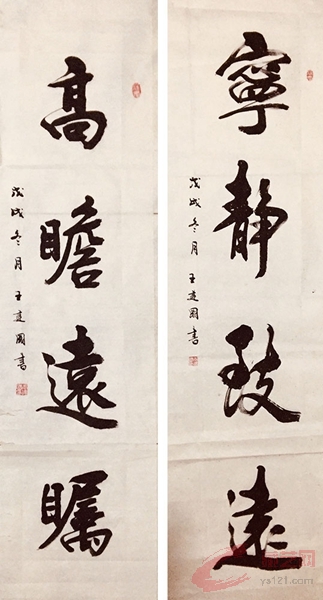 寧靜致遠
戊戌冬月 王建國書
高瞻遠矚
戊戌冬月 王建國書
ys121.com